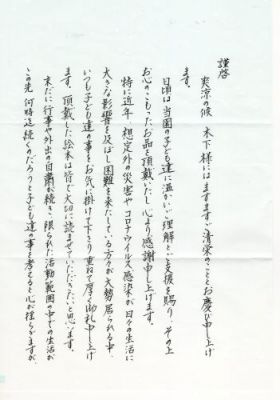 謹啓
爽涼の候 木下様にはますますご清栄のこととお慶び申し上げ
ます。
日頃は当園の子ども達に温かいご理解とご支援を賜り、その上
お心のこもったお品を頂戴いたし心より感謝申し上げます。
特に近年、想定外の災害やコロナウイルス感染が日々の生活に
大きな影響を及ぼし困難を来たしている方々が大勢居られる中、
いつも子ども達の事をお気に掛け下さり、重ねて厚く御礼申し上げ
ます。頂戴した絵本は皆で大切に読ませていただきたいと思います。
未だに行事や外出の自粛が続き、限られた活動範囲の中での生活が
この先何時迄続くのだろうと子ども達の事を考えると心が揺らぎますが、